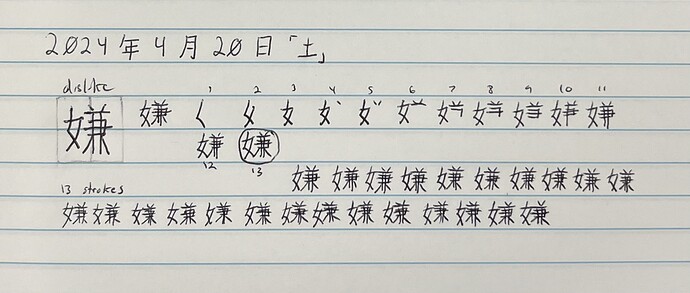 2024年4月20日「土」
dislike 1 2 3 4 5 6 7 8 9 10 11
嫌 嫌 く 女
嫌 嫌
12 13
嫌 嫌 嫌 嫌 嫌 嫌 嫌 嫌 嫌 嫌
13 strokes
嫌 嫌 嫌 嫌 嫌 嫌 嫌 嫌 嫌 嫌 嫌 嫌 嫌 嫌